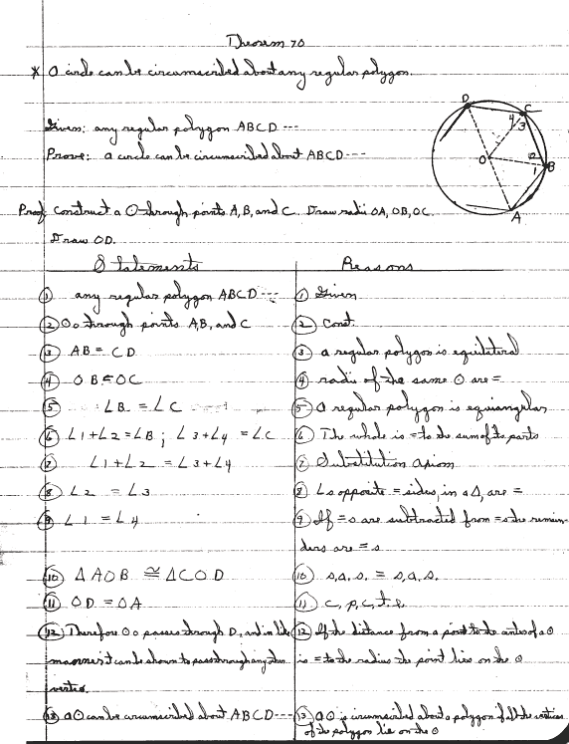 Theorem 70
* A circle can be circumscribed about any regular polygon.
Given: any regular polygon ABCD ---
Prove: a circle can be circumscribed about ABCD ---
Proof: Construct a ⊙ through points A, B, and C. Draw radii OA, OB, OC.
Draw OD.
D C 4 3 O 2 1 B A
Statements Reasons
① any regular polygon ABCD --- ① Given
② ⊙O through points A,B, and C ② Const.
③ AB = CD ③ a regular polygon is equilateral
④ OB = OC ④ radii of the same ⊙ are =
⑤ ∠B = ∠C ⑤ a regular polygon is equiangular
⑥ ∠1+∠2 = ∠B ; ∠3+∠4 = ∠C ⑥ The whole is = to the sum of its parts
⑦ ∠1+∠2 = ∠3+∠4 ⑦ Substitution axiom
⑧ ∠2 = ∠3 ⑧ ∠s opposite = sides, in a Δ, are =
⑨ ∠1 = ∠4 ⑨ If = s are subtracted from = s the remain-
ders are = s
⑩ ΔAOB ≅ ΔCOD ⑩ s.a.s. = s.a.s.
⑪ OD = OA ⑪ c.p.c.t.e.
⑫ Therefore ⊙O passes through D, and in like ⑫ If the distance from a point to the center of a ⊙
manner it can be shown to pass through any other is = to the radius the point lies on the ⊙
vertex.
⑬ a ⊙ can be circumscribed about ABCD --- ⑬ a ⊙ is circumscribed about a polygon if all the vertices
of the polygon lie on the ⊙